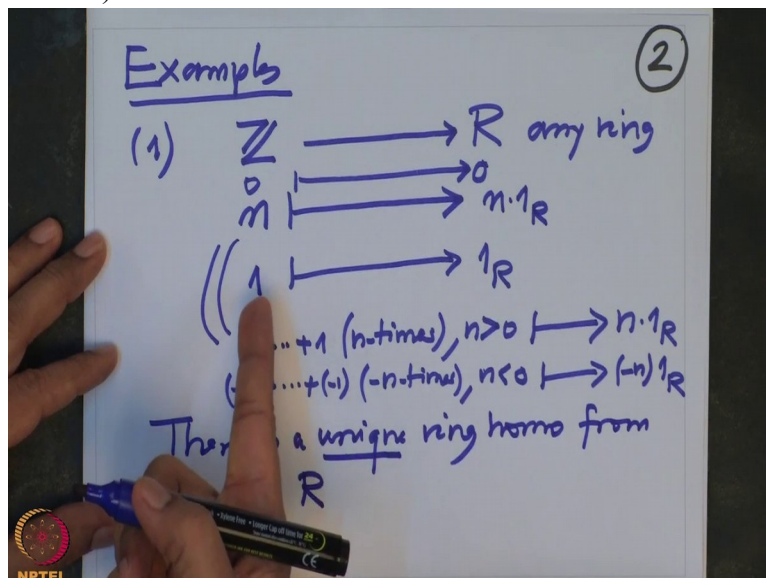 Examples
2
(1) ℤ ⟶ R any ring
0 ⟼ 0
n ⟼ n·1_R
((1 ⟼ 1_R
...+1 (n-times), n>0 ⟼ n·1_R
(- ...+(-1) (-n-times), n<0 ⟼ (-n)1_R
a unique ring homo from
R
NPTEL